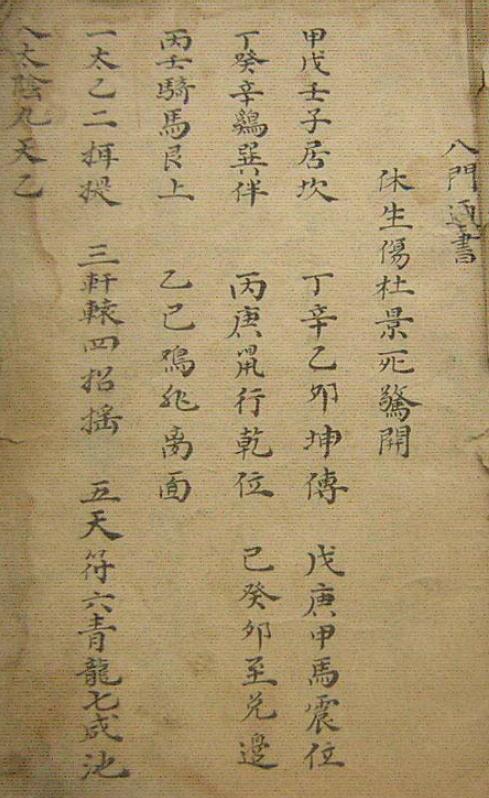 八門通書
休生傷杜景死驚開
甲戊壬子居坎 丁辛乙卯坤傳 戊庚甲馬震位
丁癸辛鷄巽伴 丙庚鼠行乾位 己癸卯至兌邊
丙壬騎馬艮上 乙己飛离面
一太乙二挕提 三軒轅四招摇 五天符六青龍七咸池
八太陰九天乙